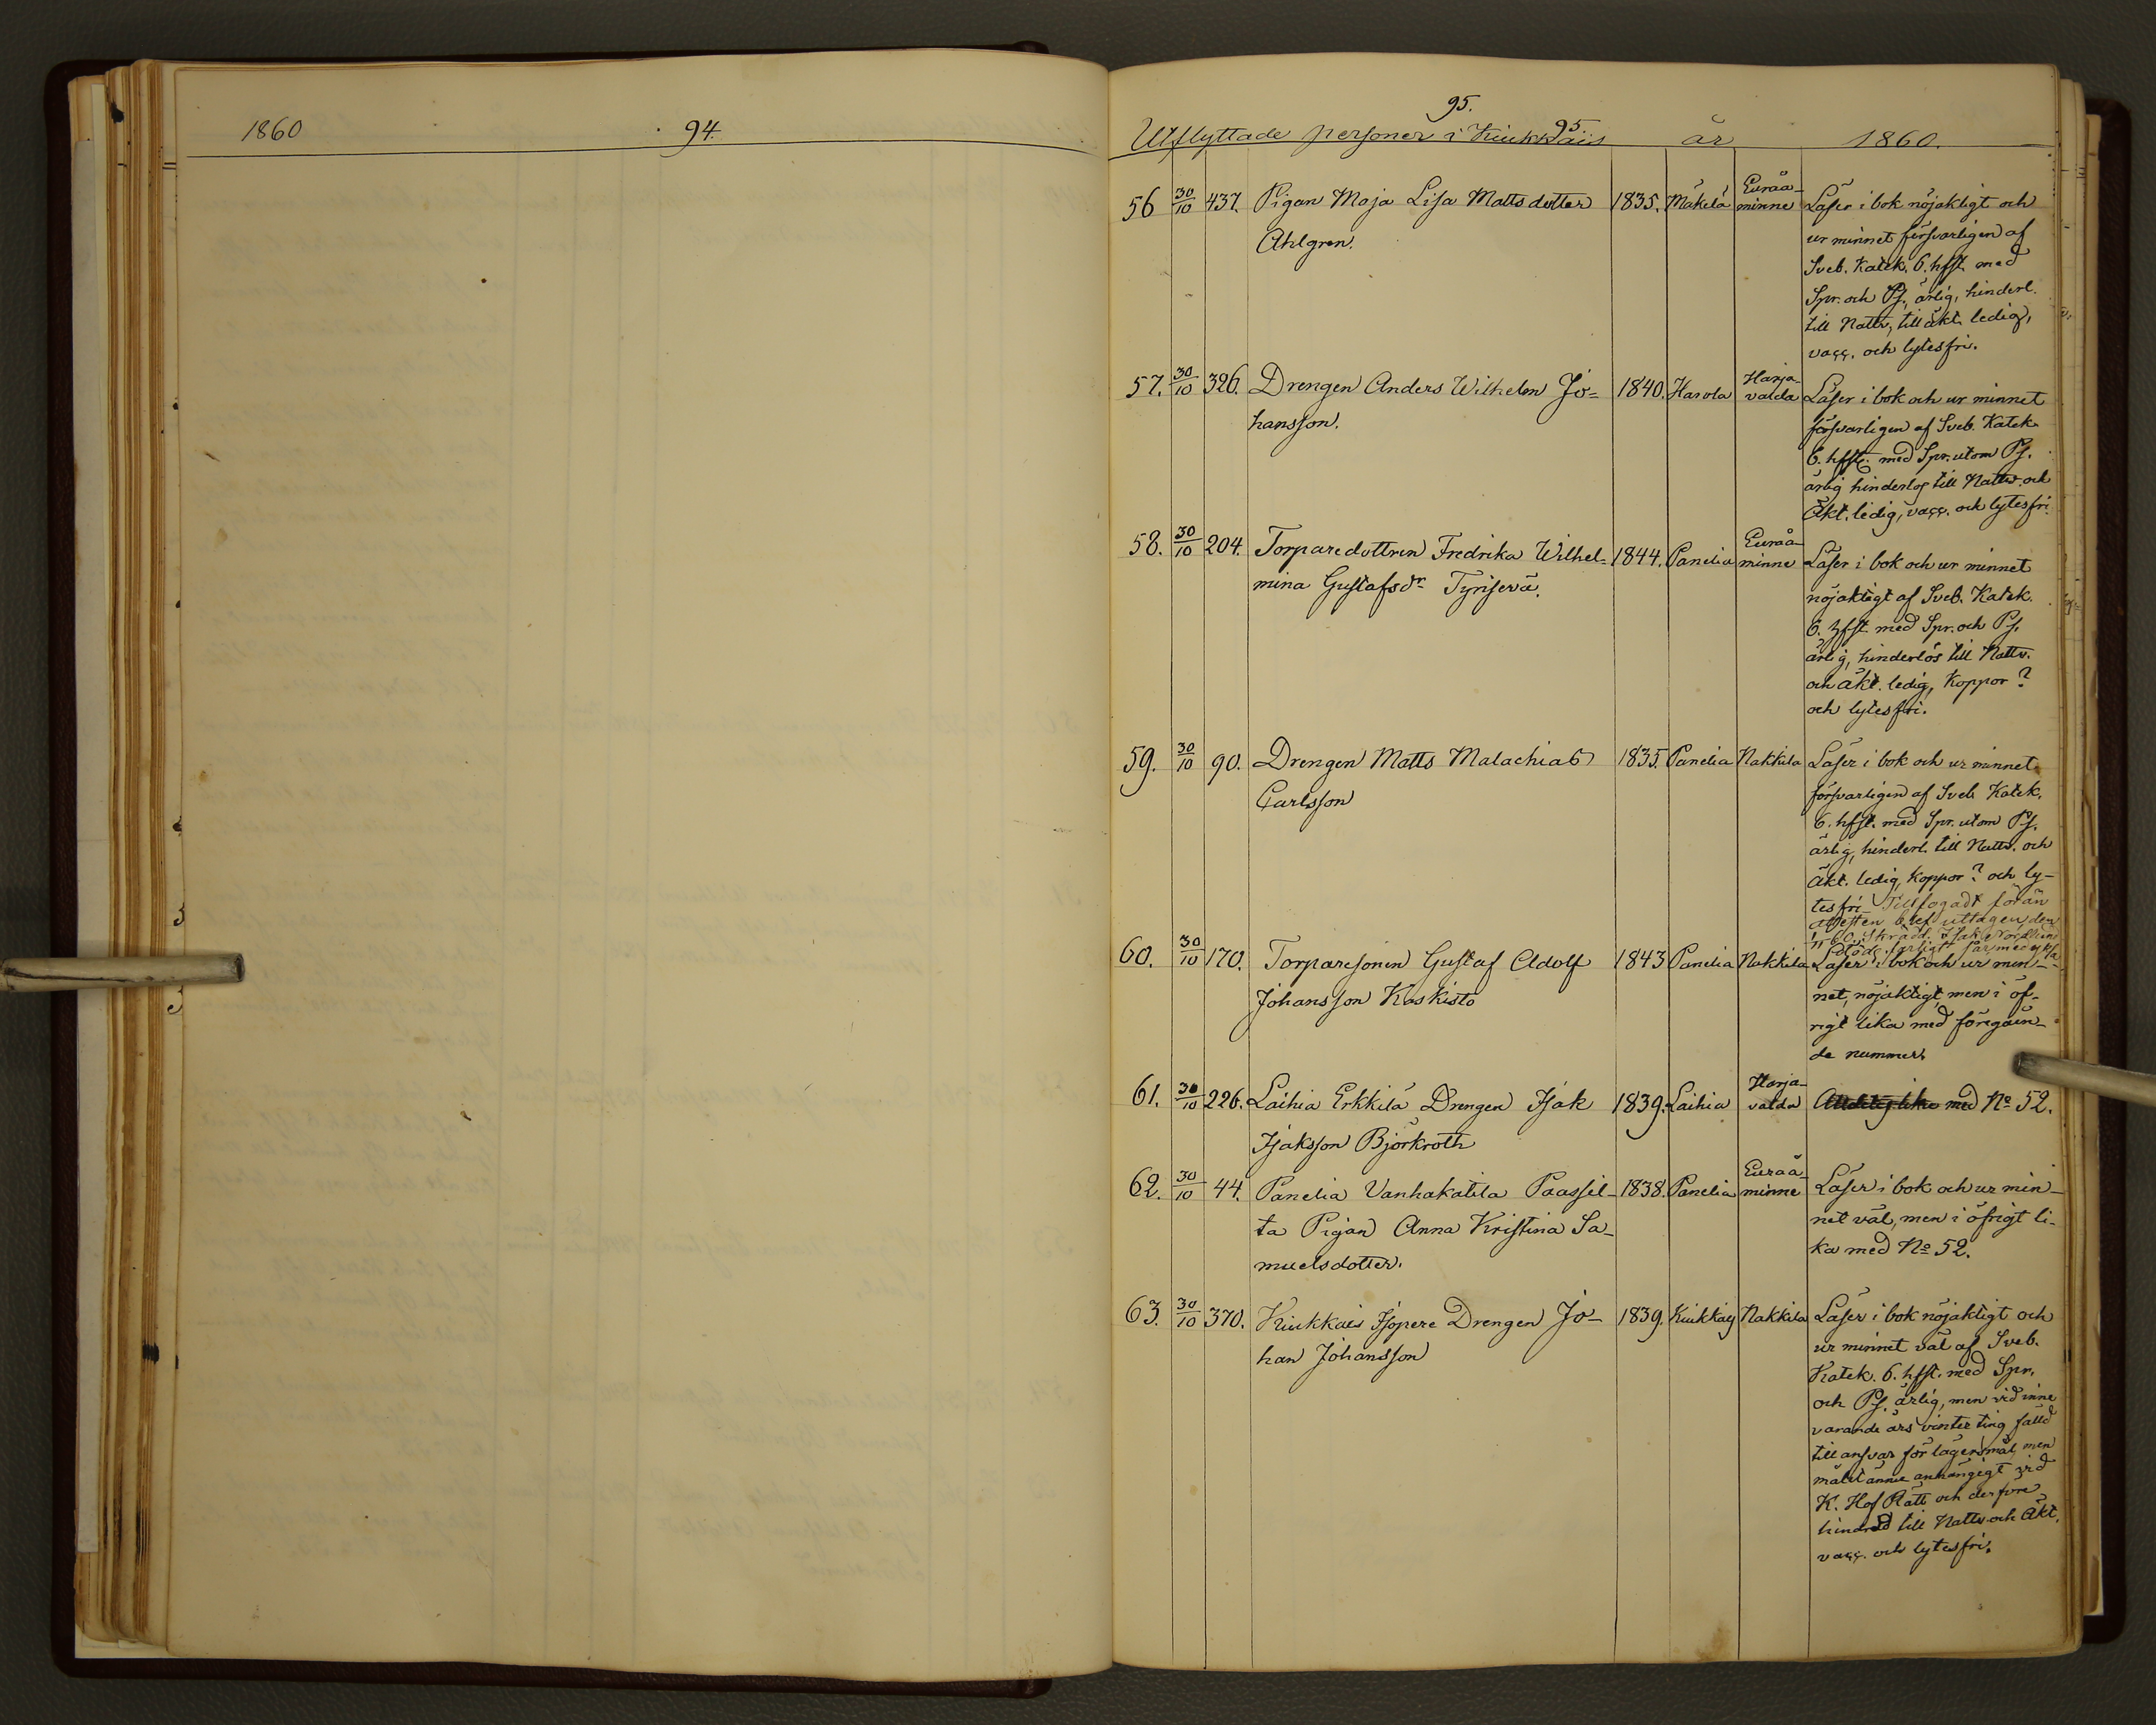 1860 94.
95.
Utflyttade personer i Kiukkais 95. år 1860.
56 30/10 437. Pigan Maja Lisa Mattsdotter 1835. Mäkelä Euraå-
minne Läser i bok nöjaktigt och
Ahlgren. ur minnet försvarligen af
Sveb. Katek. 6. hfst. med
Spr. och Ps. ärlig, hinderl.
till Nattv, till äkt. ledig,
vacc. och lytesfri.
57. 30/10 326. Drengen Anders Wilhelm Jo= 1840. Harola Harja-
valda Läser i bok och ur minnet
hansson. försvarligen af Sveb. Katek.
6. hfst. med Spr. utom Ps.
ärlig hinderlös till Nattv. och
Äkt. ledig, vacc. och lytesfri.
58. 30/10 204. Torparedottren Fredrika Wilhel= 1844. Panelia Euraå-
minne Läser i bok och ur minnet
mina Gustafsdr Tyrisevä. nöjaktigt af Sveb. Katek.
6. hfst. med Spr. och Ps.
ärlig, hinderlös till Nattv.
och äkt. ledig, Koppor?
och lytesfri.
59. 30/10 90. Drengen Matts Malachias 1835. Panelia Nakkila Läser i bok och ur minnet
Carlsson försvarligen af Sveb. Katek.
6. hfst. med Spr. utom Ps.
ärlig, hinderl. till Nattv. och
Äkt. ledig, Koppor? och ly-
tesfri. Tillfogadt förän
attesten blef uttagen den
60. 30/10 170. Torparesonen Gustaf Adolf 1843 Panelia Nakkila Läser i bok och ur min-
Johansson Koskisto net, nöjaktigt, men i öf-
rigt lika med föregåen-
de nummer.
61. 30/10 226. Laihia Erkkilä Drengen Isak 1839. Laihia Harja-
valda med No 52.
Isaksson Björkroth
62. 30/10 44. Panelia Vanhakatila Paassil- 1838. Panelia Euraå-
minne Läser i bok och ur min-
ta Pigan Anna Kristina Sa- net väl, men i öfrigt li-
muelsdotter. ka med No 52.
63. 30/10 370. Kiukkais Isopere Drengen Jo- 1839. Kiukkais Nakkila Läser i bok nöjaktigt och
han Johansson ur minnet väl af Sveb.
Katek. 6. hfst. med Spr.
och Ps. ärlig, men vid inne
varande års vinter ting fälld
till ansvar för lägersmål, men
målet ännu anhängigt vid
K. Hof Rätt och derföre
hindrad till Nattv. och Äkt,
vacc. och lytesfri.